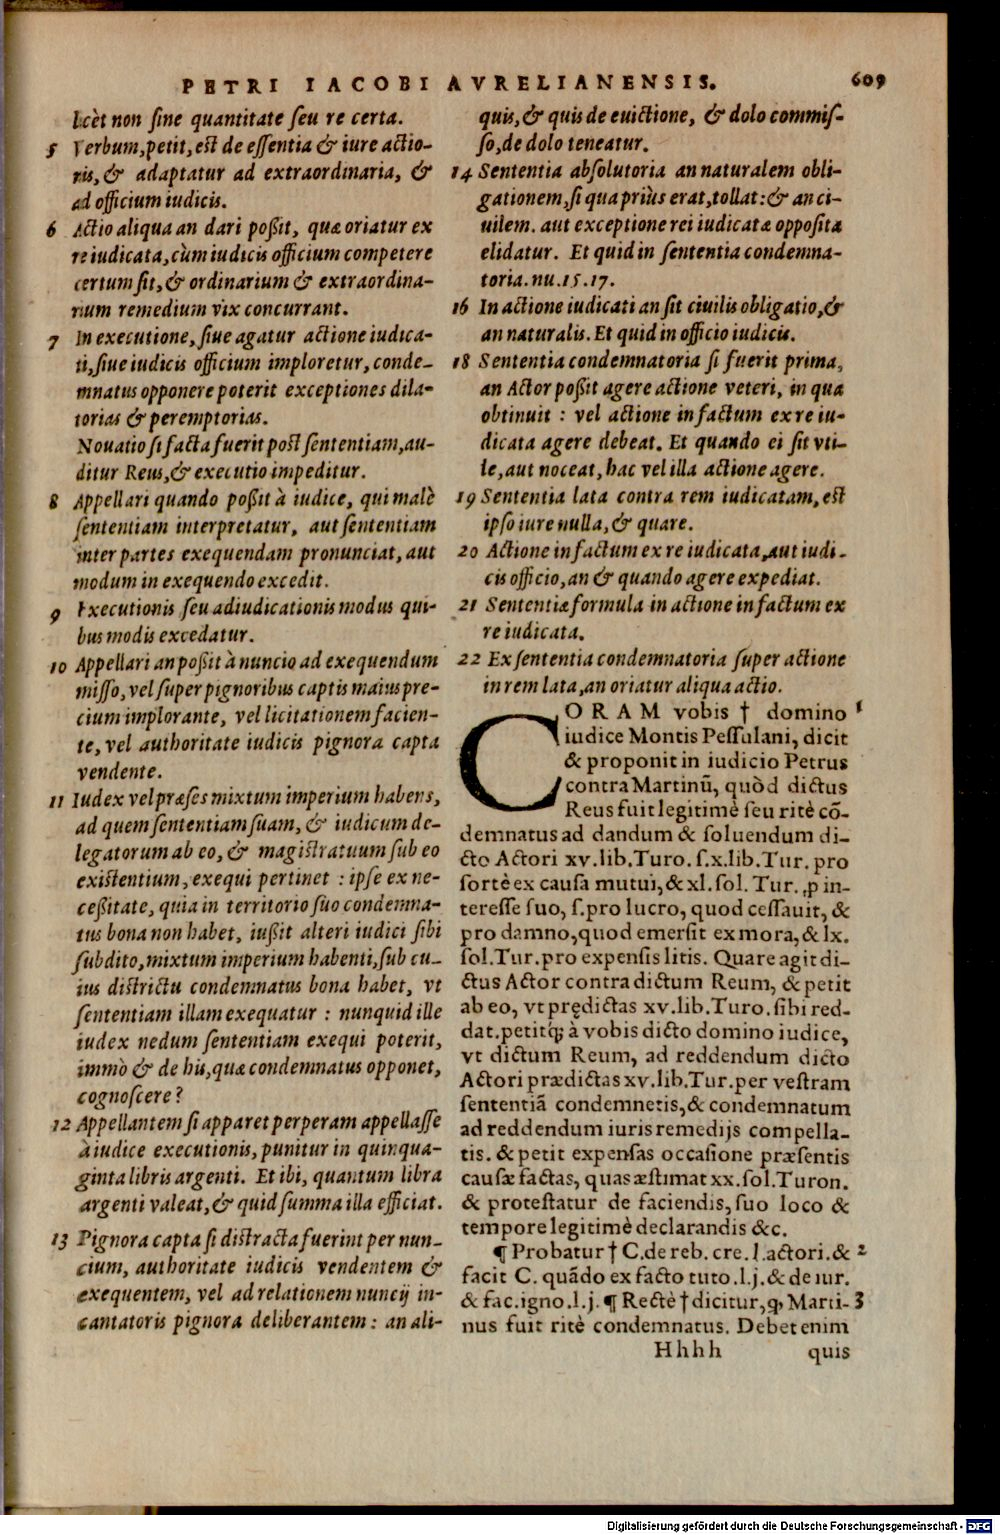 PETRI IACOBI AVRELIANENSIS. 609
licèt non sine quantitate seu re certa.
5 Verbum, petit, est de essentia & iure actio-
nis, & adaptatur ad extraordinaria, &
ad officium iudicis.
6 Actio aliqua an dari poßit, quæ oriatur ex
re iudicata, cùm iudicis officium competere
certum sit, & ordinarium & extraordina-
rium remedium vix concurrant.
7 In executione, siue agatur actione iudica-
ti, siue iudicis officium imploretur, conde-
mnatus opponere poterit exceptiones dila-
torias & peremptorias.
Nouatio si facta fuerit post sententiam, au-
ditur Reus, & executio impeditur.
8 Appellari quando poßit à iudice, qui malè
sententiam interpretatur, aut sententiam
inter partes exequendam pronunciat, aut
modum in exequendo excedit.
9 Executionis seu adiudicationis modus qui-
bus modis excedatur.
10 Appellari an poßit à nuncio ad exequendum
misso, vel super pignoribus captis maius pre-
cium implorante, vel licitationem facien-
te, vel authoritate iudicis pignora capta
vendente.
11 Iudex vel præses mixtum imperium habens,
ad quem sententiam suam, & iudicum de-
legatorum ab eo, & magistratuum sub eo
existentium, exequi pertinet : ipse ex ne-
ceßitate, quia in territorio suo condemna-
tus bona non habet, iußit alteri iudici sibi
subdito, mixtum imperium habenti, sub cu-
ius districtu condemnatus bona habet, vt
sententiam illam exequatur : nunquid ille
iudex nedum sententiam exequi poterit,
immò & de his, quæ condemnatus opponet,
cognoscere?
12 Appellantem si apparet perperam appellasse
à iudice executionis, punitur in quinqua-
ginta libris argenti. Et ibi, quantum libra
argenti valeat, & quid summa illa efficiat.
13 Pignora capta si distracta fuerint per nun-
cium, authoritate iudicis vendentem &
exequentem, vel ad relationem nuncij in-
cantatoris pignora deliberantem : an ali-
quis, & quis de euictione, & dolo commis-
so, de dolo teneatur.
14 Sententia absolutoria an naturalem obli-
gationem, si qua priùs erat, tollat: & an ci-
uilem. aut exceptione rei iudicatæ opposita
elidatur. Et quid in sententia condemna-
toria. nu. 15. 17.
16 In actione iudicati an sit ciuilis obligatio, &
an naturalis. Et quid in officio iudicis.
18 Sententia condemnatoria si fuerit prima,
an Actor poßit agere actione veteri, in qua
obtinuit : vel actione in factum ex re iu-
dicata agere debeat. Et quando ei sit vti-
le, aut noceat, hac vel illa actione agere.
19 Sententia lata contra rem iudicatam, est
ipso iure nulla, & quare.
20 Actione in factum ex re iudicata, aut iudi-
cis officio, an & quando agere expediat.
21 Sententiæ formula in actione in factum ex
re iudicata.
22 Ex sententia condemnatoria super actione
in rem lata, an oriatur aliqua actio.
CORAM vobis † domino 1
iudice Montis Pessulani, dicit
& proponit in iudicio Petrus
contra Martinũ, quòd dictus
Reus fuit legitimè seu ritè cõ-
demnatus ad dandum & soluendum di-
cto Actori xv. lib. Turo. s. x. lib. Tur. pro
sortè ex causa mutui, & xl. sol. Tur. ꝓ in-
teresse suo, s. pro lucro, quod cessauit, &
pro damno, quod emersit ex mora, & lx.
sol. Tur. pro expensis litis. Quare agit di-
ctus Actor contra dictum Reum, & petit
ab eo, vt prędictas xv. lib. Turo. sibi red-
dat. petitq́; à vobis dicto domino iudice,
vt dictum Reum, ad reddendum dicto
Actori prædictas xv. lib. Tur. per vestram
sententiã condemnetis, & condemnatum
ad reddendum iuris remedijs compella-
tis. & petit expensas occasione præsentis
causæ factas, quas æstimat xx. sol. Turon.
& protestatur de faciendis, suo loco &
tempore legitimè declarandis &c.
¶ Probatur † C. de reb. cre. l. actori. & 2
facit C. quãdo ex facto tuto. l. j. & de iur.
& fac. igno. l. j. ¶ Rectè † dicitur, ꝙ Marti- 3
nus fuit ritè condemnatus. Debet enim
Hhhh quis
Digitalisierung gefördert durch die Deutsche Forschungsgemeinschaft - DFG